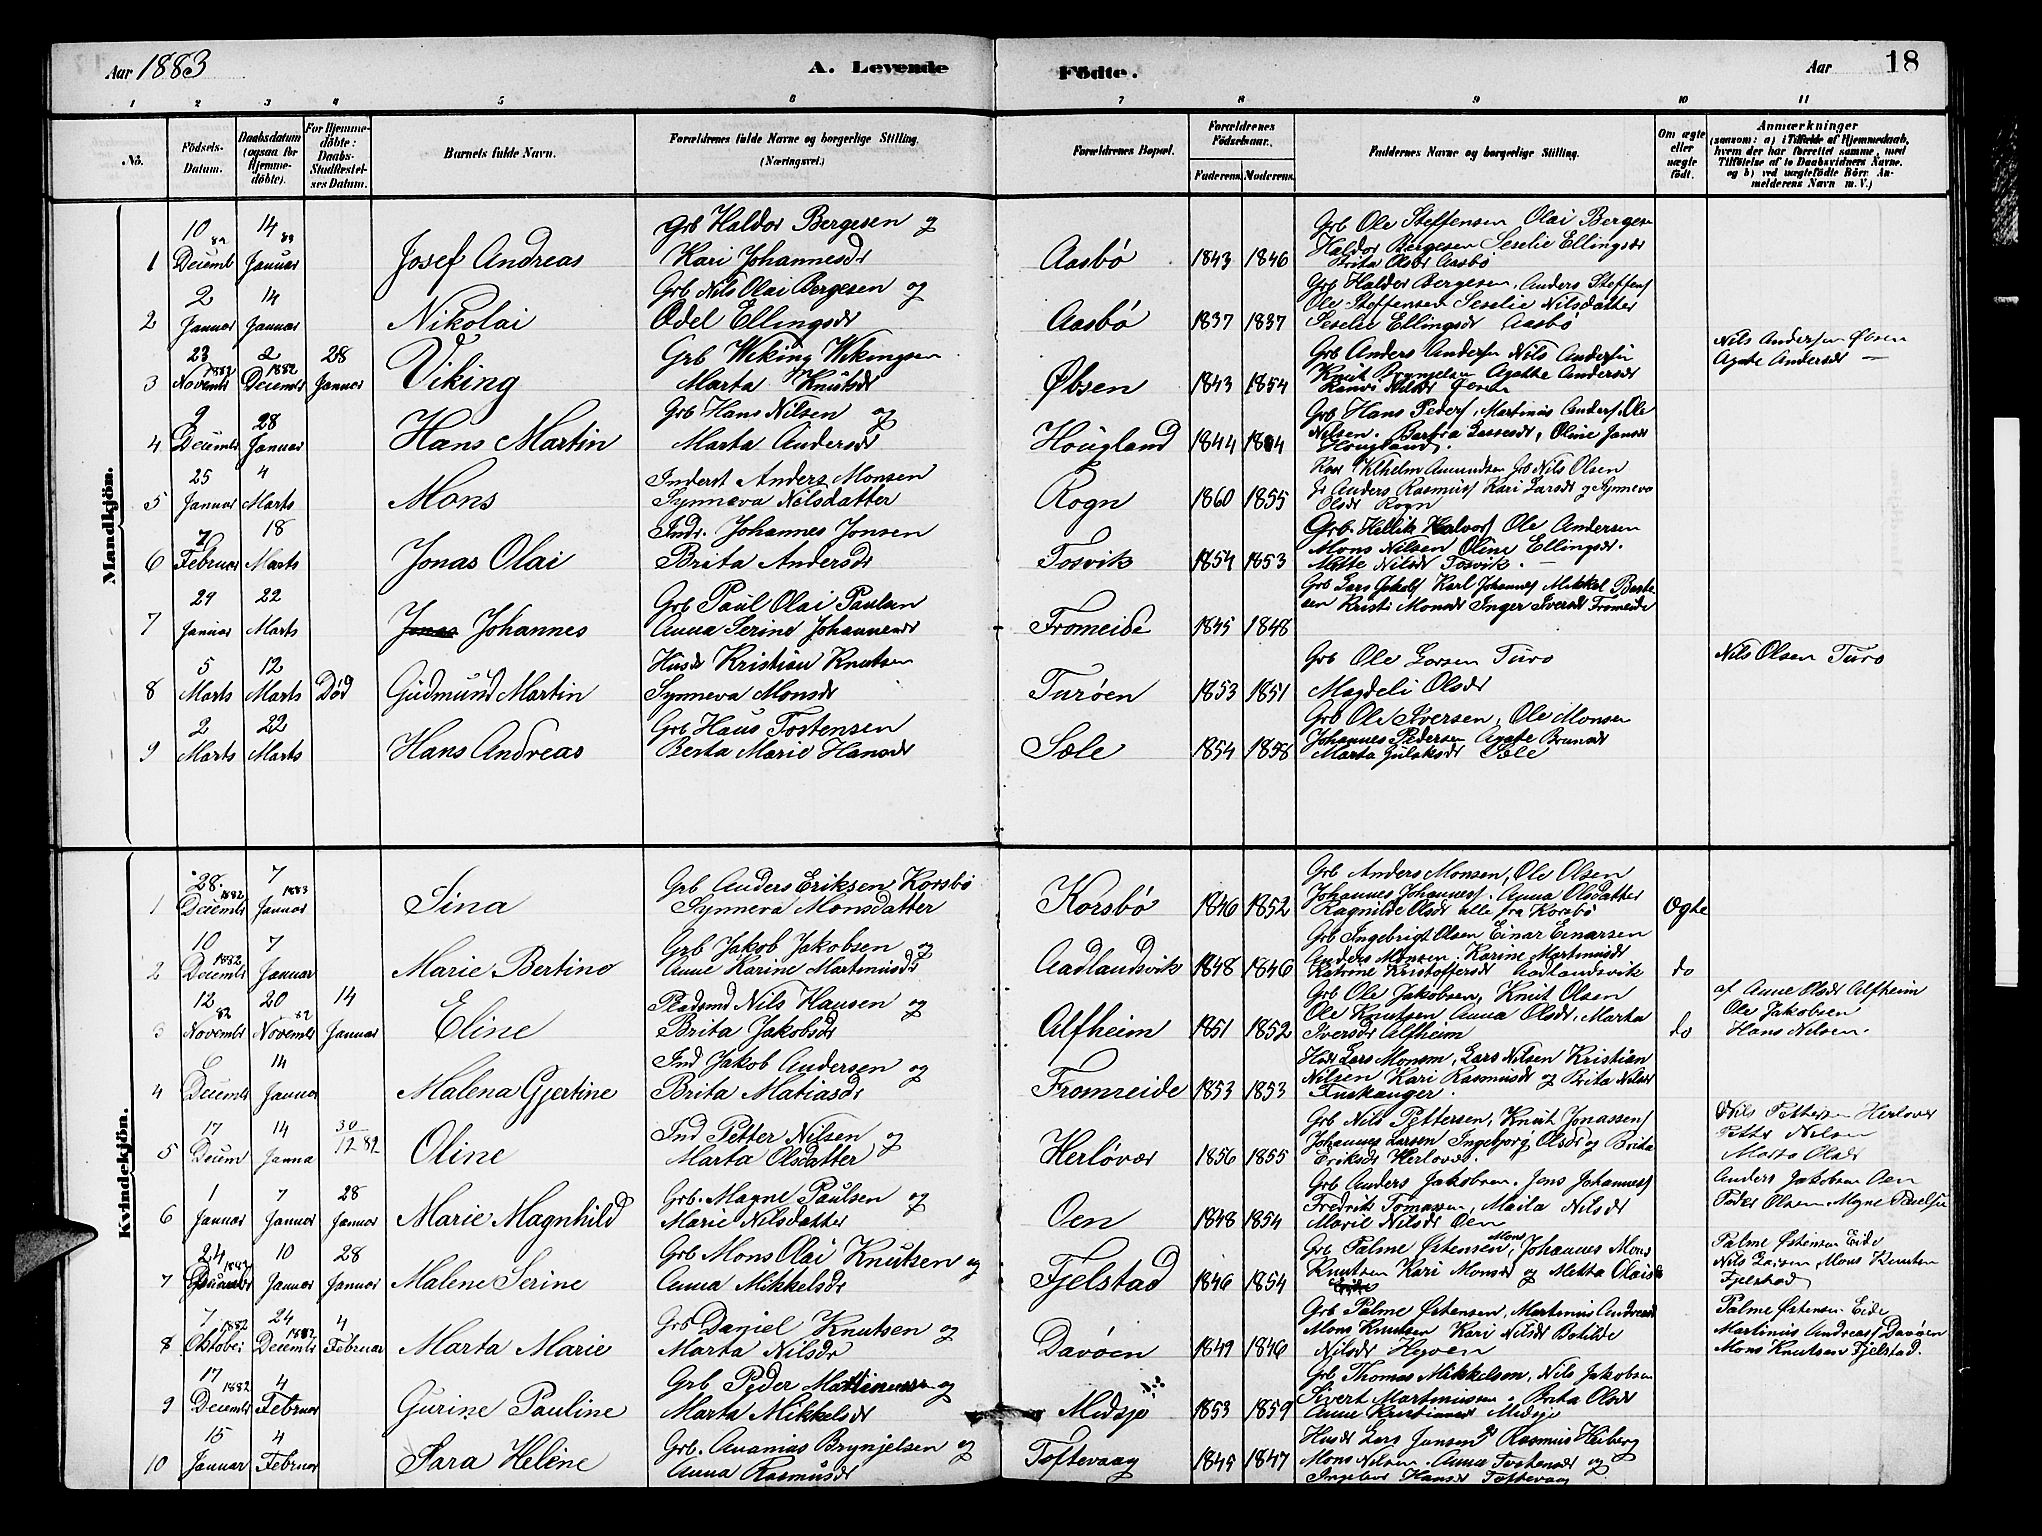 Aar 1883 A. Levende Födte. Aar 18
1 2 3 4 5 6 7 8 9 10 11
No. Födsels-Datum. Daabsdatum (ogsaa for Hjemmedöbte). For Hjemmedöbte: Daabs-Stadfæstelses Datum. Barnets fulde Navn. Forældrenes fulde Navne og borgerlige Stilling. (Næringsvei.) Forældrenes Bopæl. Forældrenes Födselsaar. Faderens. Moderens. Faddernes Navne og borgerlige Stilling. Om ægte eller uægte födt. Anmærkninger (saasom: a) i Tilfælde af Hjemmedaab, hvem der har forrettet samme, med Tilföielse af to Daabsvidners Navne, og b) ved uægtefödte Börn Anmelderens Navn m. V.)
Mandkjön.
10 82 14 83 Grb Haldor Bergesen og Grb Ole Steffensen Olai Bergese
1 Decemb Januar Josef Andreas Kari Johannesdr Aasbö 1843 1846 Haldor Bergesen Seselie Ellingsdr
Brita Olsdr Aasbö
2 14 Grb Nils Olai Bergesen og Grb Haldor Bergesen, Anders Steffens
2 Januar Januar Nikolai Odel Ellingsdr Aasbö 1837 1837 Ole Steffensen Seselie Nilsdatter
Seselie Ellingsdr Aasbö
23 1882 2 1882 28 Grb Wiking Wikingsen Grb Anders Andersen Nils Andersen Nils Andersen Øvsen
3 Novembr Decembr Januar Viking Marta Knutsdr Øbsen 1843 1854 Knut Brynjelsen Agathe Andersdr Agate Andersdr —
Nilsdr Øvsen
9 28 Grb Hans Nilsen og Grb Hans Peders, Martinus Anders, Ole
4 Decembr Januar Hans Martin Marta Andersdr Hougland 1844 Nilsen. Barbra Lassesdr, Oline Jansdr
Hougland.
25 4 Inderst Anders Monsen Vilhelm Amundsen Grb Nils Olsen
5 Januar Marts Mons Synneva Nilsdatter Rogn 1860 1855 Anders Rasmus Kari Larsdr og Synneva
Olsdr Rogn
7 18 Indr. Johannes Jonsen Grb. Hellik Halvors Ole Andersen
6 Februar Marts Jonas Olai Brita Andersdr Tosvik 1854 1853 Mons Nilsen Oline Ellingsdr.
Mette Nilsdr Tosvik. —
29 22 Grb Paul Olai Paulsen Grb Lars Jakobs Karl Johannes Mikkel Baste
7 Januar Marts Jonas Johannes Anna Serine Johannesdr Fromeide 1845 1848 sen Kristi Monsdr Inger Iversdr Fromeide
5 12 Husdr Kristian Knutsen Grb Ole Larsen Turö Nils Olsen Turö
8 Marts Marts Död Gudmund Martin Synneva Monsdr Turöen 1853 1851 Magdeli Olsdr
2 22 Grb Hans Tostensen Grb Ole Iversen, Ole Monsen
9 Marts Marts Hans Andreas Berta Marie Hansdr Sæle 1854 1858 Johannes Pedersen Agate Brunsdr
Marta Gulaksdr Sæle
Kvindekjön.
28. 1882 7 1883 Grb Anders Eriksen Korsbö Grb Anders Monsen, Ole Olsen
1 Decembr Januar Sina Synneva Monsdatter Korsbö 1846 1852 Johannes Johannes. Anna Olsdatter
Ragnilde Olsdr alle fra Korsbö Ogte
10 1882 7 Grb Jakob Jakobsen og Grb Ingebrigt Olsen Einar Einarsen
2 Decembr Januar Marie Bertine Anne Karine Martinusdr Aadlandsvik 1848 1846 Anders Monsen, Karine Martinusdr
Katrine Kristoffersdr Aadlandsvik do
12 82 20 82 14 Pladsmd Nils Hansen og Grb Ole Jakobsen, Knut Olsen af Anne Olsdr Alfheim
3 Novembr Novembr Januar Eline Brita Jakobsdr Alfheim 1851 1852 Ole Knutsen Anna Olsdr, Marta Ole Jakobsen
Iversdr Alfheim do Hans Nilsen.
6 14 Ind Jakob Andersen og Husdr Lars Monsen, Lars Nilsen Kristian
4 Decembr Januar Malena Gjertine Brita Matiasdr Fromreide 1853 1853 Nilsen Kari Rasmusdr og Brita Nilsdr
Tuskanger.
17 14 30/12 82 Ind Petter Nilsen og Grb Nils Pettersen, Knut Jonassen Nils Pettersen Herlöver
5 Decem Janua Oline Marta Olsdatter Herlövær 1856 1855 Johannes Larsen Ingeborg Olsdr og Brita Petter Nilsen
Eriksdr Herlöver. Marta Olsdr
1 7 28 Grb. Magne Paulsen og Grb Anders Jakobsen, Jens Johannes Anders Jakobsen Oen
6 Januar Januar Januar Marie Magnhild Marie Nilsdatter Oen 1848 1854 Fredrik Tomassen, Marta Nilsdr Peder Olsen Magne Paulsen
Marie Nilsdr Oen
24 1882 10 28 Grb Mons Olai Knutsen og Grb Palme Østensen, Mons Johannes Mons Palme Østensen Eide
7 Januar Januar Malene Serine Anna Mikkelsdr Fjelstad 1846 1854 Knutsen Kari Monsdr og Metta Olaisdr Nils Larsen, Mons Knutsen
Eide Fjelstad
7 1882 24 1882 4 Grb Daniel Knutsen og Grb Palme Østensen, Martinus Andreas Palme Østensen Eide
8 Oktober Decembr Februar Marta Marie Marta Nilsdr Davöen 1849 1846 Mons Knutsen Kari Nilsdr Botilde Martinus Andreas Davöen
Nilsdr Hyven Mons Knutsen Fjelstad.
17 1882 4 Grb Peder Martinussen og Grb Thomas Mikkelsen, Nils Jakobsen
9 Decembr Februar Gurine Pauline Marta Mikkelsdr Midsjø 1853 1859 Sivert Martinussen Brita Olsdr
Anna Kristiansdr Midsjø
15 4 Grb. Ananias Brynjelsen og Husdr Lars Jansen Rasmus Heiberg
10 Januar Februar Sara Helene Anna Rasmusdr Toftevaag 1845 1847 Mons Nilsen Anna Tostensdr og
Ingebor Hansdr Toftevaag